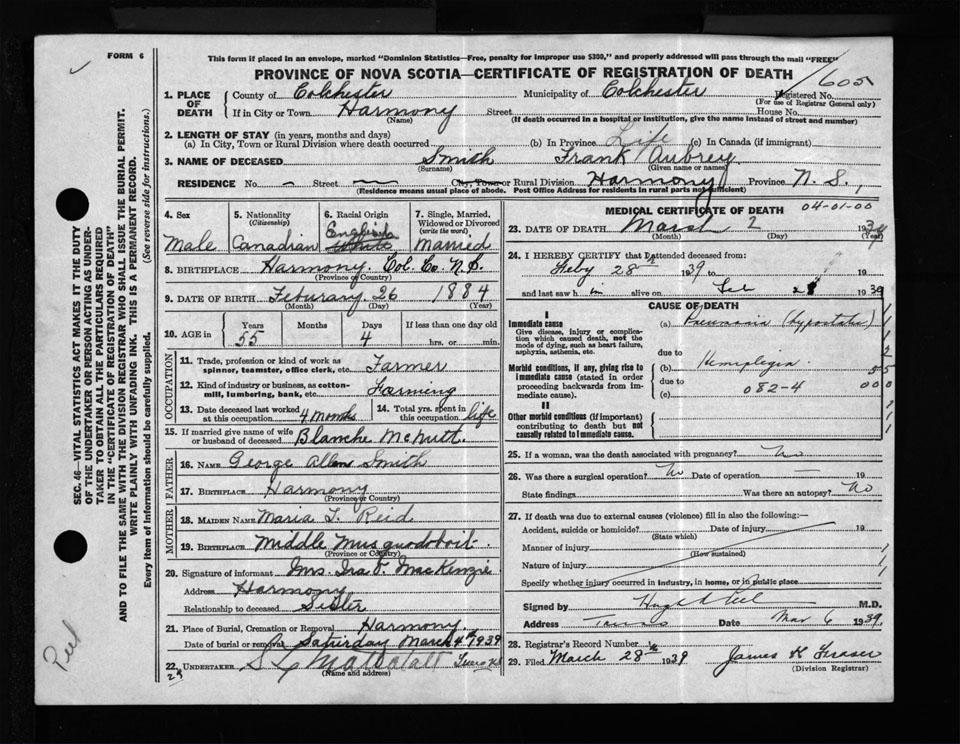 FORM 6
This form if placed in an envelope, marked "Dominion Statistics—Free, penalty for improper use $300," and properly addressed will pass through the mail "FREE"
PROVINCE OF NOVA SCOTIA—CERTIFICATE OF REGISTRATION OF DEATH
605
1. PLACE OF DEATH
County of Colchester Municipality of Colchester Registered No.
(For use of Registrar General only)
If in City or Town Harmony Street House No.
(Name) (If death occurred in a hospital or institution, give the name instead of street and number)
2. LENGTH OF STAY (in years, months and days)
(a) In City, Town or Rural Division where death occurred (b) In Province Life (c) In Canada (if immigrant)
3. NAME OF DECEASED Smith Frank Aubrey
(Surname) (Given name or names)
RESIDENCE No. — Street — City, Town or Rural Division Harmony Province N. S.
(Residence means usual place of abode. Post Office Address for residents in rural parts not sufficient)
4. Sex
Male
5. Nationality
(Citizenship)
Canadian
6. Racial Origin
English
White
7. Single, Married, Widowed or Divorced
(write the word)
Married
8. BIRTHPLACE Harmony. Col. Co. N.S.
(Province or Country)
9. DATE OF BIRTH Feburary 26 1884
(Month) (Day) (Year)
10. AGE in
Years Months Days If less than one day old
55 4 hrs. or min.
OCCUPATION
11. Trade, profession or kind of work as spinner, teamster, office clerk, etc. Farmer
12. Kind of industry or business, as cotton-mill, lumbering, bank, etc. Farming
13. Date deceased last worked at this occupation 4 Months
14. Total yrs. spent in this occupation life
15. If married give name of wife or husband of deceased Blanche McNutt.
FATHER
16. NAME George Allen Smith
17. BIRTHPLACE Harmony
(Province or Country)
MOTHER
18. MAIDEN NAME Maria I. Reid
19. BIRTHPLACE Middle Musquodoboit.
(Province or Country)
20. Signature of informant Mrs. Ira F. MacKenzie
Address Harmony
Relationship to deceased Sister
21. Place of Burial, Cremation or Removal Harmony
Date of burial or removal Saturday March 4th 1939
22. UNDERTAKER Truro N.S
(Name and address)
MEDICAL CERTIFICATE OF DEATH
04-01-00
23. DATE OF DEATH March 2 1939
(Month) (Day) (Year)
24. I HEREBY CERTIFY that I attended deceased from:
Feby 28th 1939 to 19
and last saw him alive on Feb 28 1939
CAUSE OF DEATH
I
Immediate cause
Give disease, injury or complication which caused death, not the mode of dying, such as heart failure, asphyxia, asthenia, etc.
(a) Pneumonia (hypostatic)
due to
Morbid conditions, if any, giving rise to immediate cause (stated in order proceeding backwards from immediate cause).
(b) Hemiplegia
due to
(c) 082-4
II
Other morbid conditions (if important) contributing to death but not causally related to immediate cause.
25. If a woman, was the death associated with pregnancy? No
26. Was there a surgical operation? No Date of operation 19
State findings Was there an autopsy? No
27. If death was due to external causes (violence) fill in also the following:—
Accident, suicide or homicide? Date of injury 19
(State which)
Manner of injury
(How sustained)
Nature of injury
Specify whether injury occurred in industry, in home, or in public place
Signed by M.D.
Address Truro Date Mar 6 1939.
28. Registrar's Record Number
29. Filed March 28th 1939 James K Fraser
(Division Registrar)
SEC. 46—VITAL STATISTICS ACT MAKES IT THE DUTY OF THE UNDERTAKER OR PERSON ACTING AS UNDERTAKER TO OBTAIN ALL THE PARTICULARS REQUIRED IN THE "CERTIFICATE OF REGISTRATION OF DEATH" AND TO FILE THE SAME WITH THE DIVISION REGISTRAR WHO SHALL ISSUE THE BURIAL PERMIT.
WRITE PLAINLY WITH UNFADING INK. THIS IS A PERMANENT RECORD.
Every item of information should be carefully supplied. (See reverse side for instructions.)